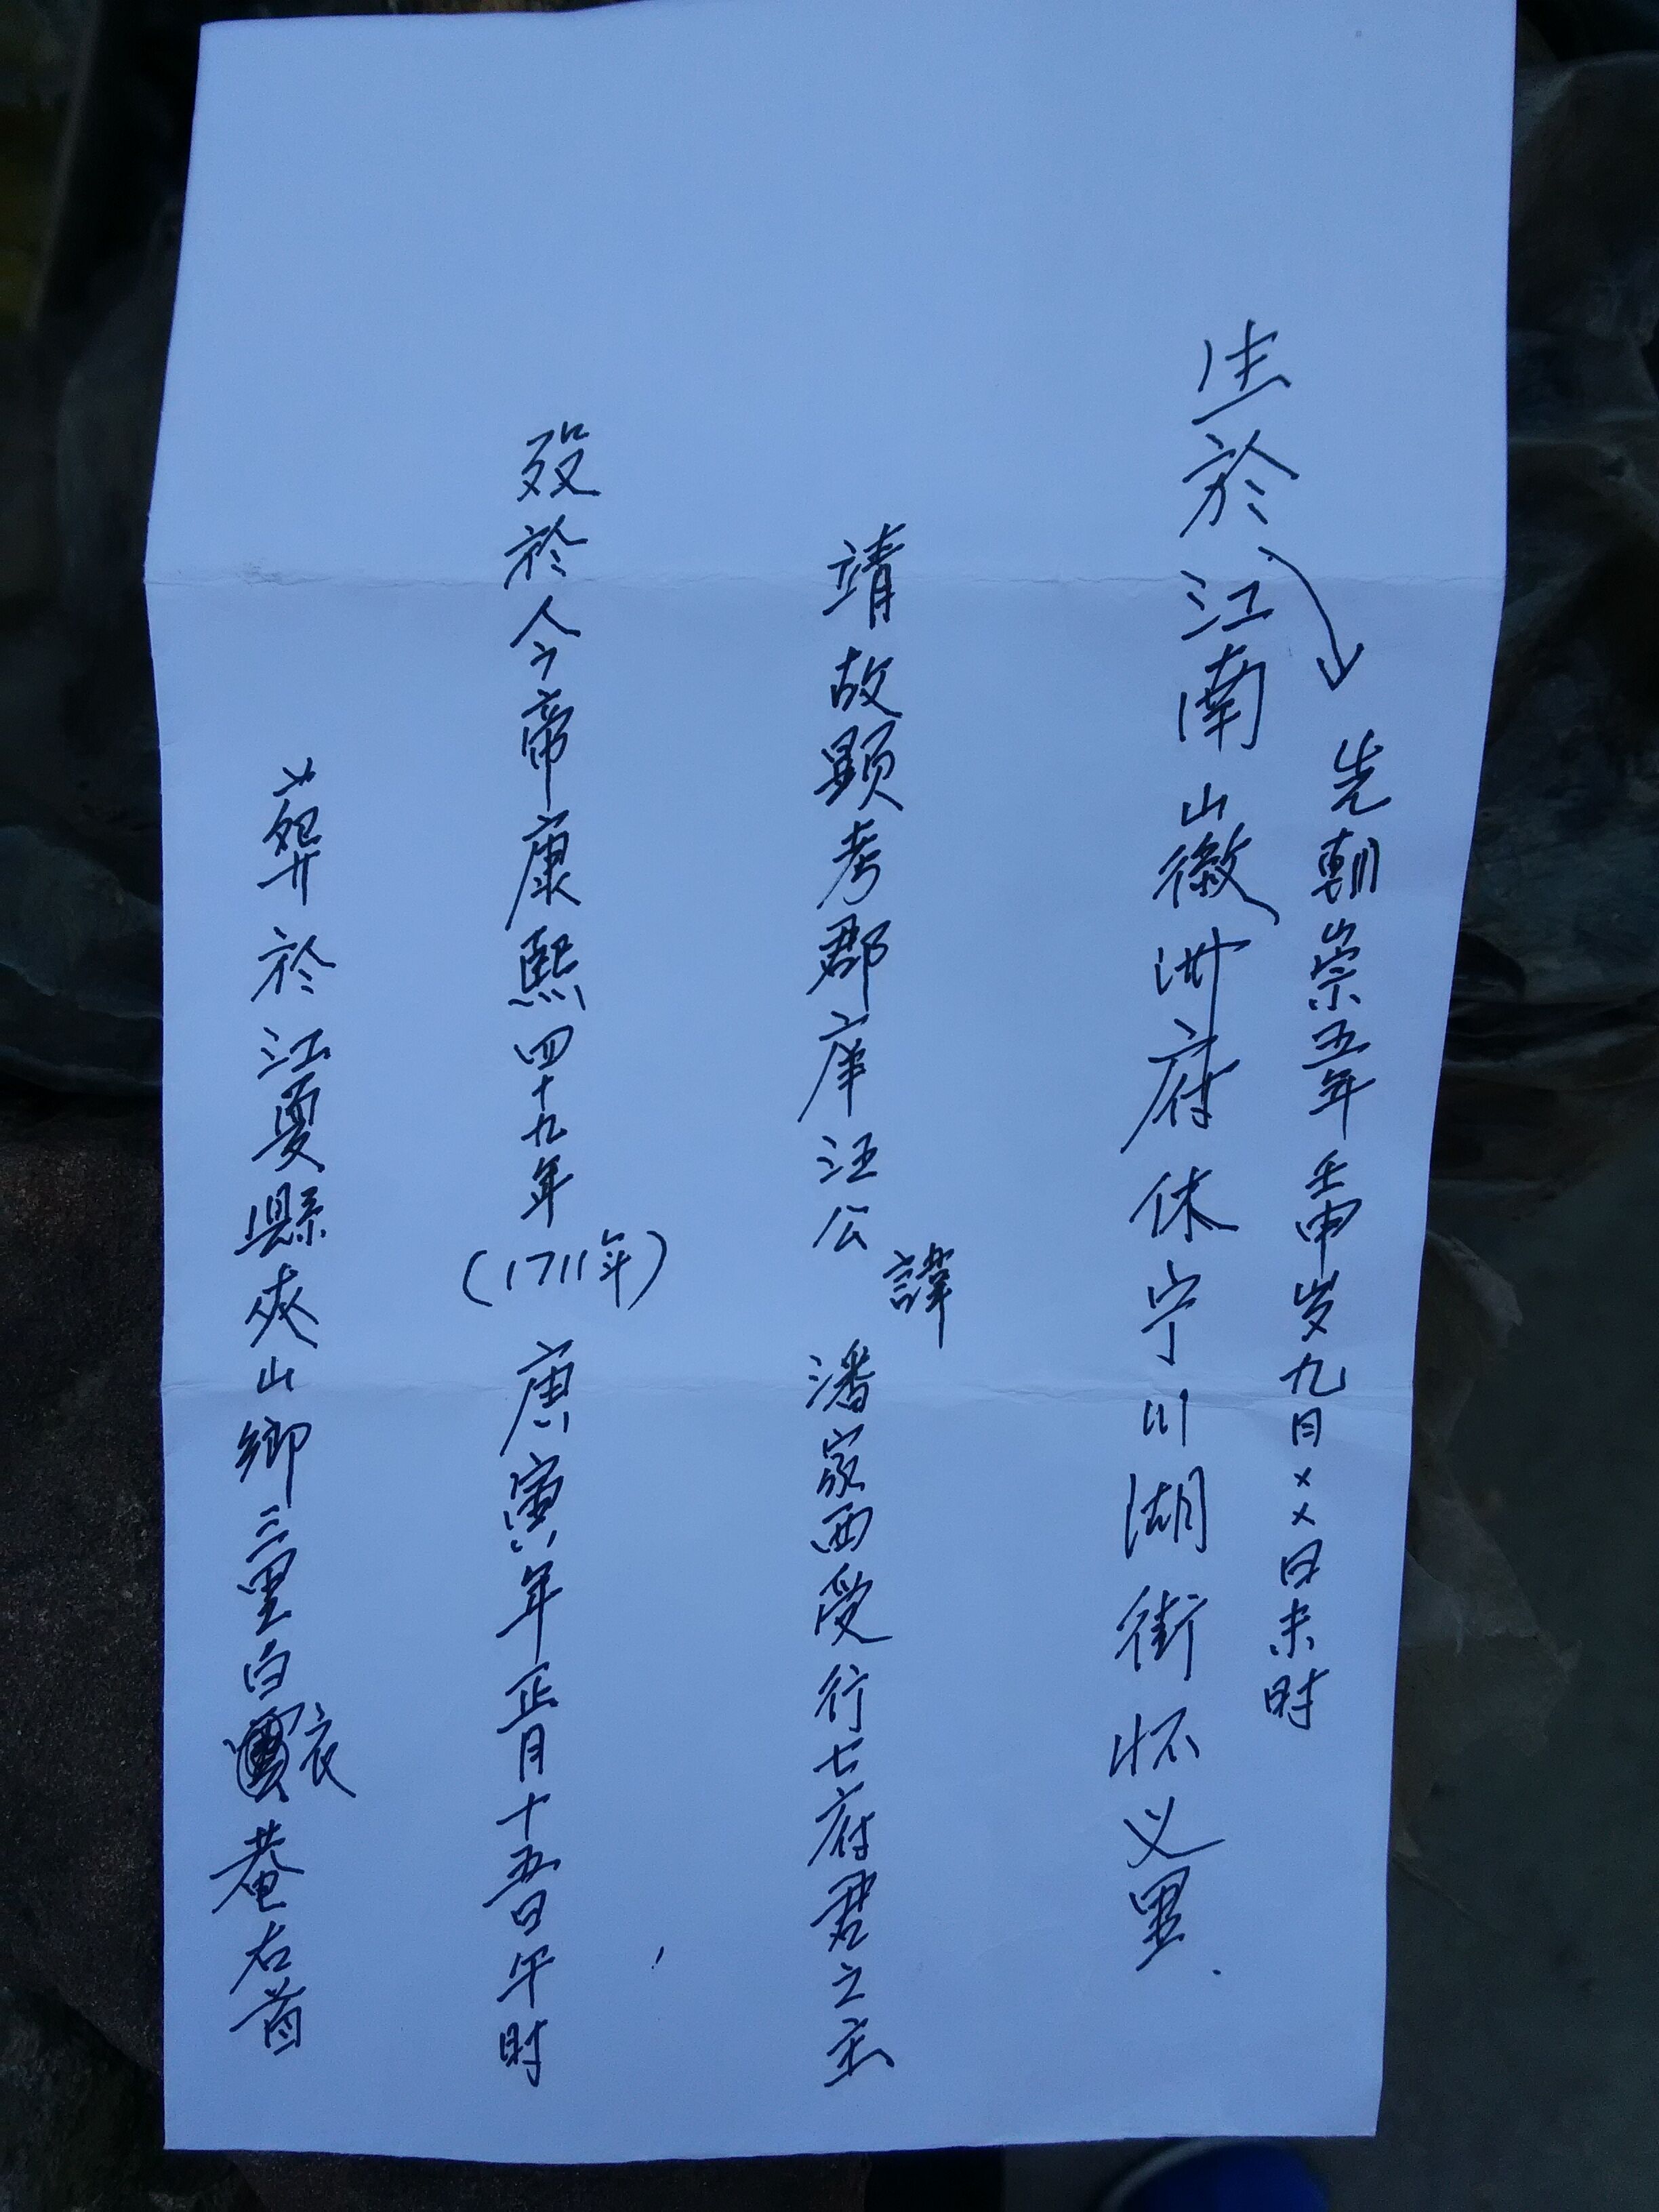 先朝崇五年壬申岁九月××日未时
生於江南山徽州府休宁川湖街怀义里.
靖故顯考郡庠汪公諱潘家西受行七府君之主
殁於今帝康熙四十九年(1711年)庚寅年正月十五日午时
葬於江夏縣夾山鄉三里白衣菴右首